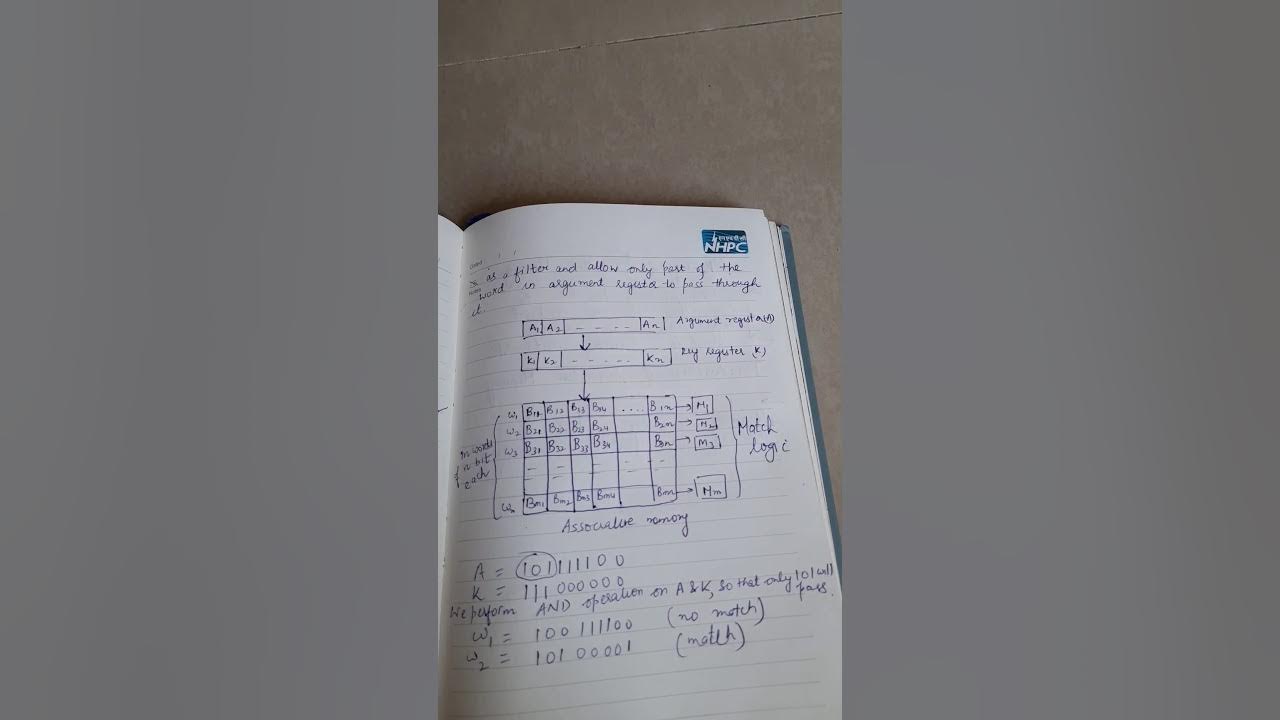 एनएचपीसी
NHPC
as a filter and allow only part of the
word in argument register to pass through
it.
A1 A2 - - - - An Argument register(A)
K1 K2 - - - - - Kn Key register (K)
w1 B11 B12 B13 B14 .... B1n M1
w2 B21 B22 B23 B24 B2n M2
w3 B31 B32 B33 B34 B3n M3
Bm1 Bm2 Bm3 Bm4 Bmn Mm
m words
n bit
each
Match
logic
Associative memory
A = 101111100
K = 111000000
We perform AND operation on A & K, so that only 101 will
pass.
w1 = 100 111100 (no match)
w2 = 101 00001 (match)